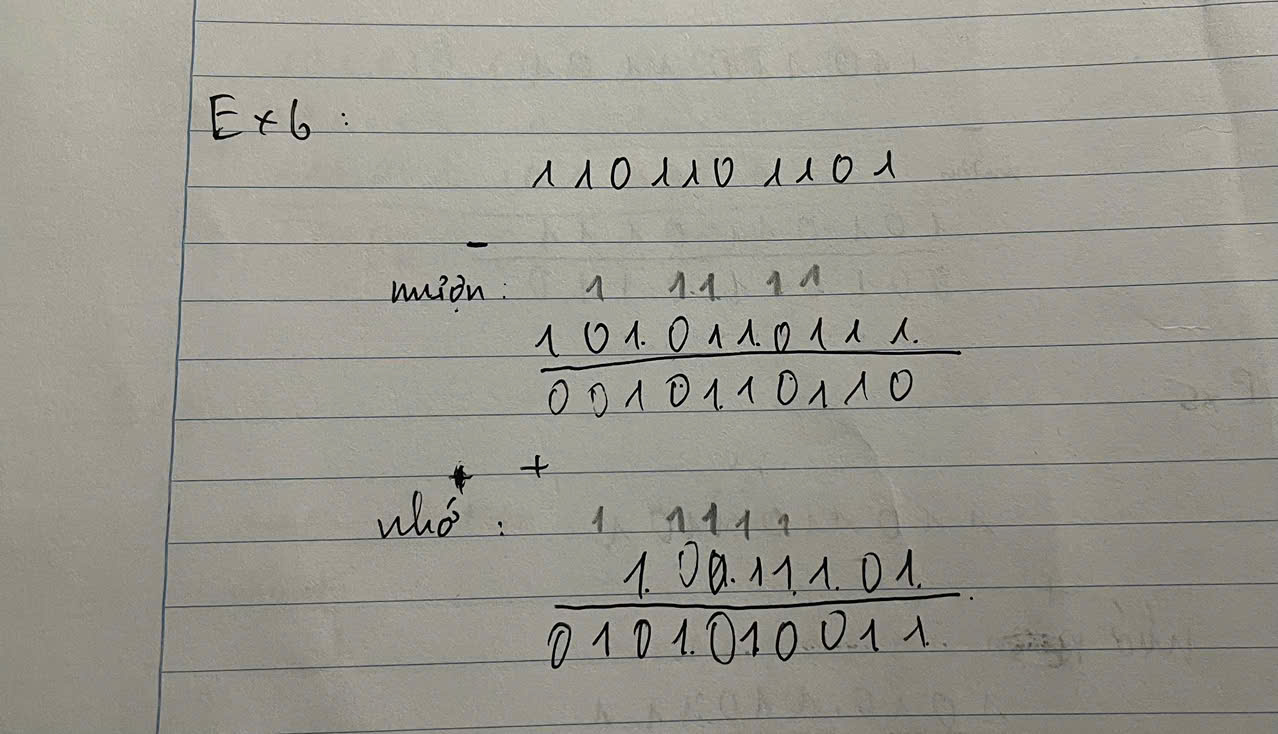 Ex6 :
1 1 0 1 1 0 1 1 0 1
-
mượn : 1 1.1. 1 1
1 0 1. 0 1 1. 0 1 1 1.
0 0 1 0 1. 1 0 1 1 0
+
nhớ : 1 1 1 1 1
1. 0 0. 1 1. 1. 0 1.
0 1 0 1. 0 1 0 0 1 1.